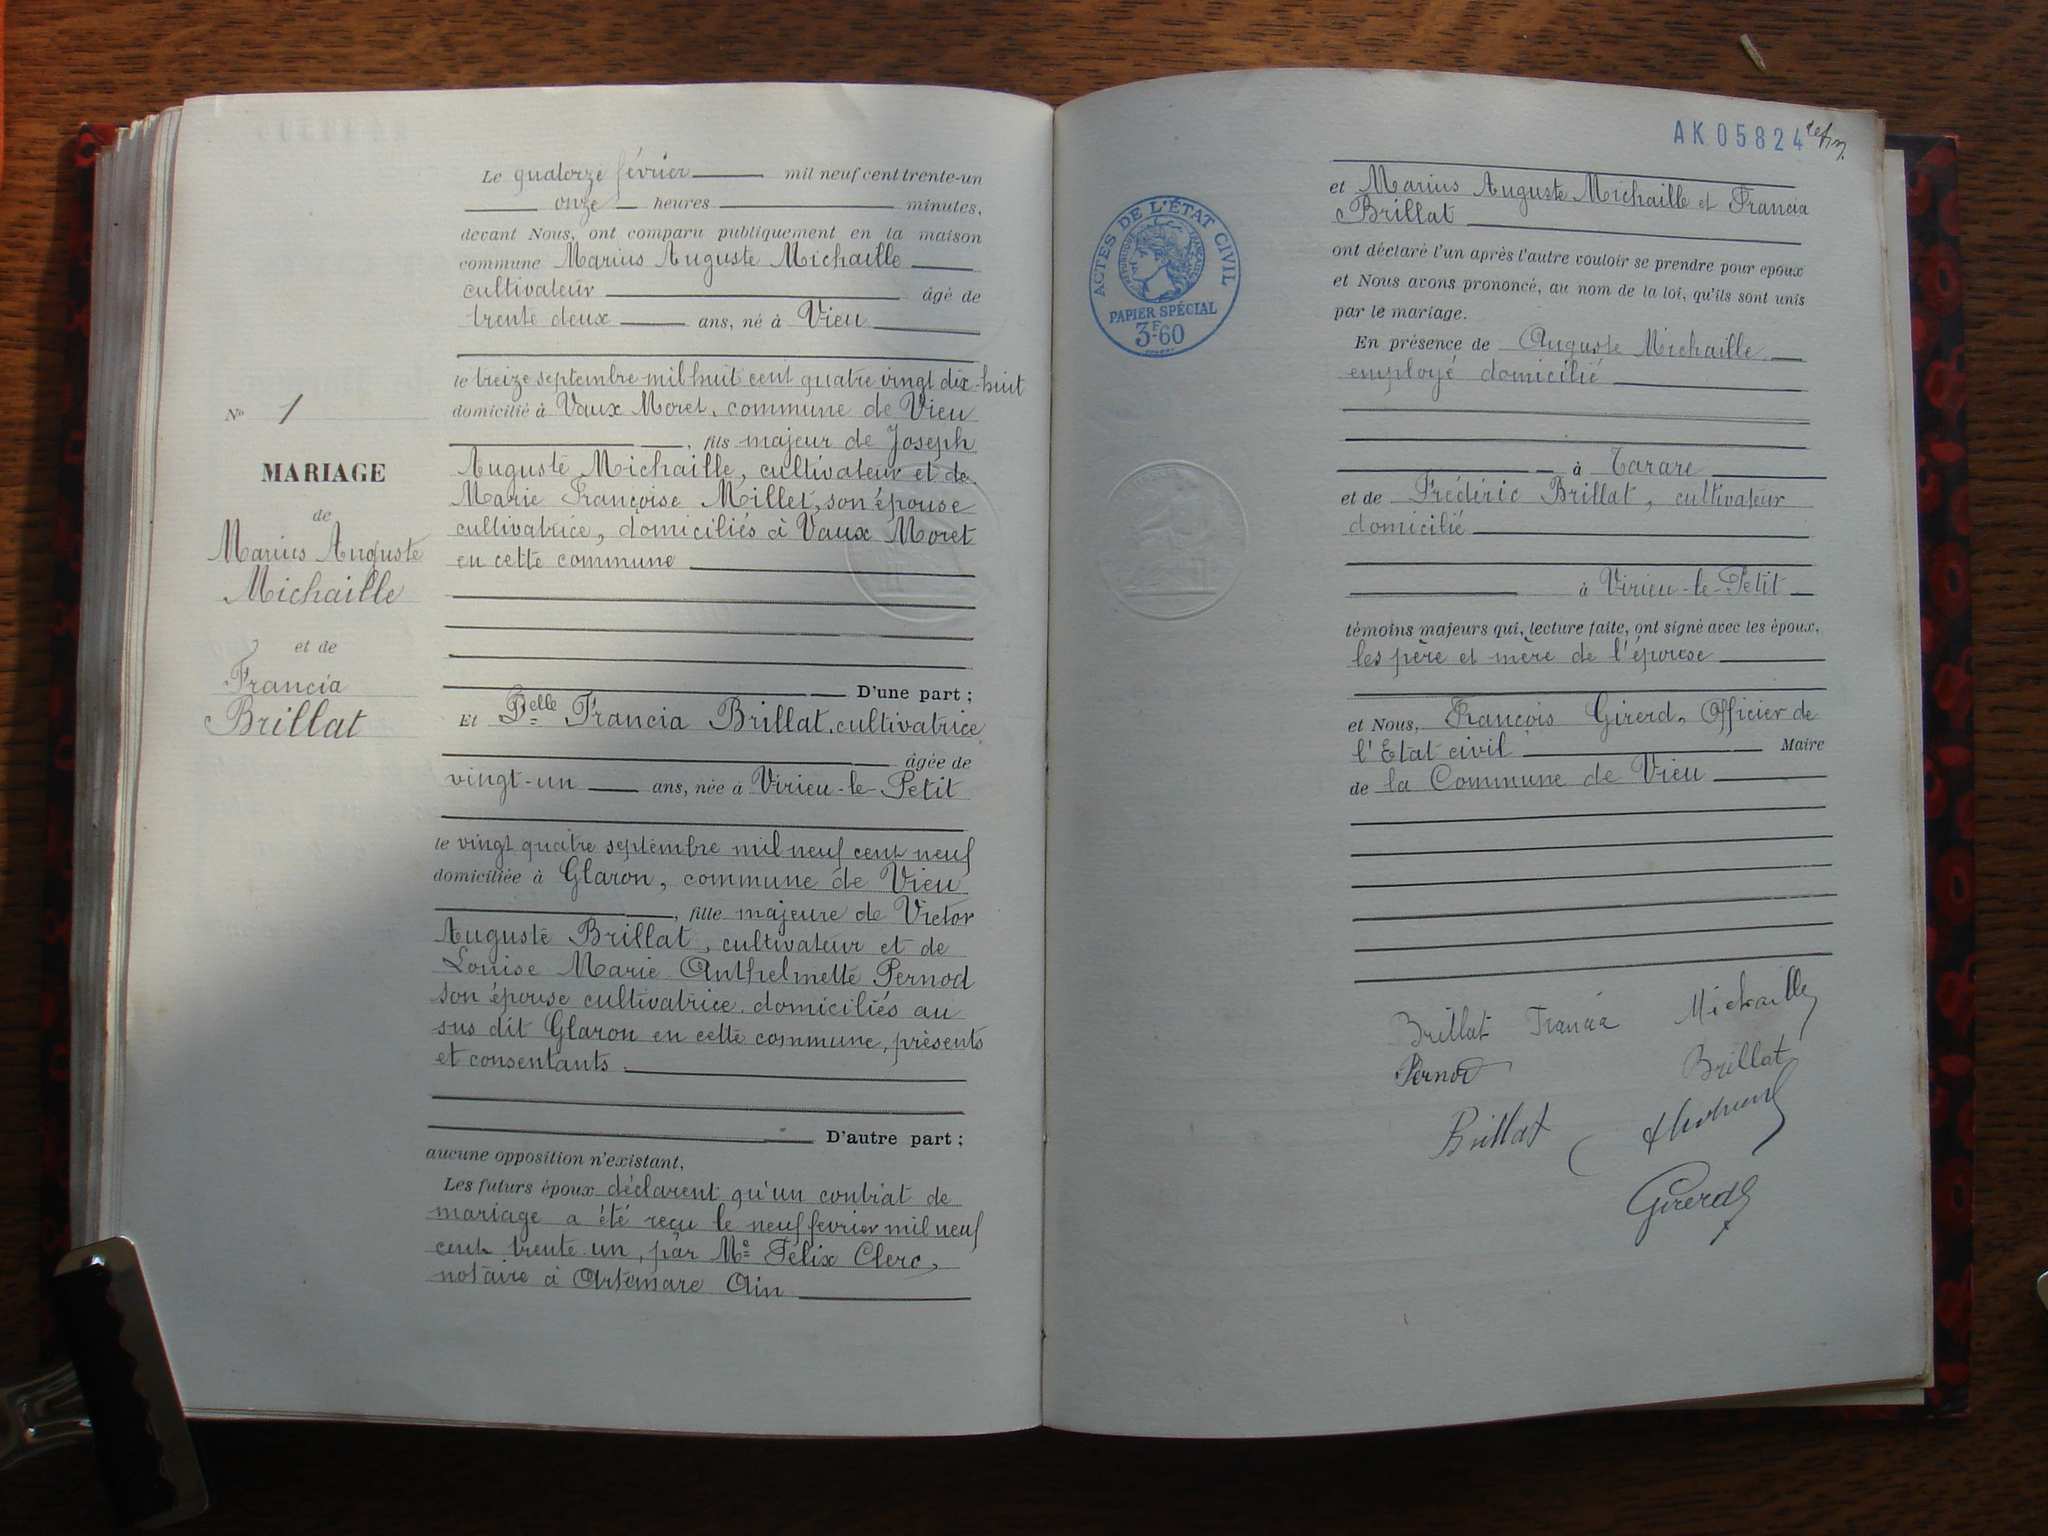 Le quatorze février mil neuf cent trente-un
onze heures minutes,
devant Nous, ont comparu publiquement en la maison
commune Marius Auguste Michaille
cultivateur âgé de
trente deux ans, né à Vieu
le treize septembre mil huit cent quatre vingt dix-huit
domicilié à Vaux Moret, commune de Vieu
, fils majeur de Joseph
Auguste Michaille, cultivateur et de
Marie Françoise Millet, son épouse
cultivatrice, domiciliés à Vaux Moret
en cette commune
D'une part ;
Et Delle Francia Brillat, cultivatrice
âgée de
vingt-un ans, née à Virieu-le-Petit
le vingt quatre septembre mil neuf cent neuf
domiciliée à Glaron, commune de Vieu
, fille majeure de Victor
Auguste Brillat, cultivateur et de
Louise Marie Anthelmette Pernod
son épouse cultivatrice, domiciliés au
sus dit Glaron en cette commune, présents
et consentants
D'autre part ;
aucune opposition n'existant,
Les futurs époux déclarent qu'un contrat de
mariage a été reçu le neuf février mil neuf
cent trente-un, par Me Félix Clerc,
notaire à Artemare Ain
No 1
MARIAGE
de
Marius Auguste
Michaille
et de
Francia
Brillat
AK05824
ACTES DE L'ÉTAT CIVIL
RÉPUBLIQUE FRANÇAISE
PAPIER SPÉCIAL
3F60
et Marius Auguste Michaille et Francia
Brillat
ont déclaré l'un après l'autre vouloir se prendre pour époux
et Nous avons prononcé, au nom de la loi, qu'ils sont unis
par le mariage.
En présence de Auguste Michaille
employé domicilié
à Tarare
et de Frédéric Brillat, cultivateur
domicilié
à Virieu-le-Petit
témoins majeurs qui, lecture faite, ont signé avec les époux,
les père et mère de l'épouse
et Nous, François Girerd, Officier de
l'Etat civil Maire
de la Commune de Vieu
Brillat Francia Michaille
Pernod Brillat
Brillat
Girerd